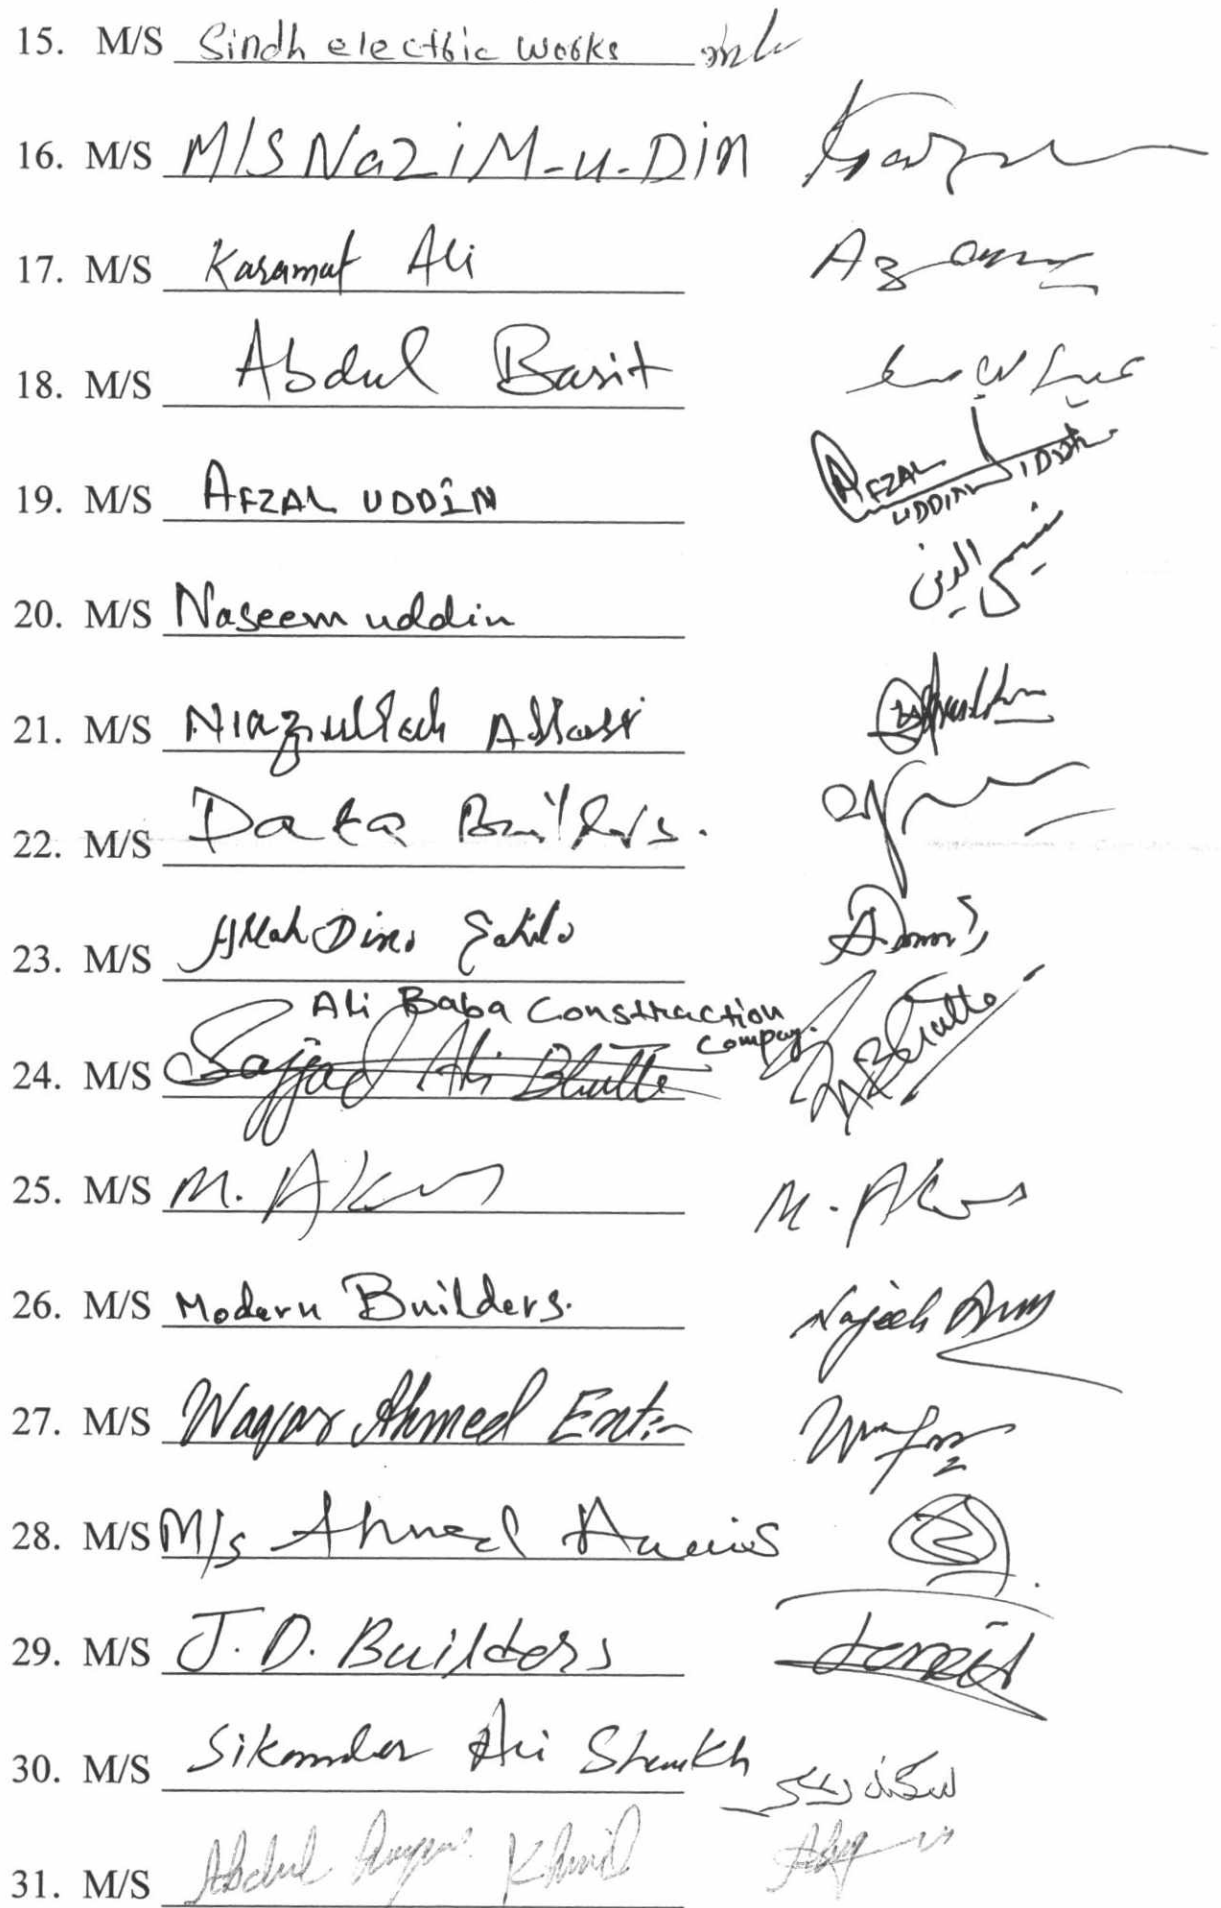 15. M/S Sindh electric works
16. M/S M/S NaziM-u-Din
17. M/S Karamat Ali
18. M/S Abdul Basit عبدالباسط
19. M/S AFZAL UDDIN AFZAL UDDIN
20. M/S Naseem uddin نسیم الدین
21. M/S Niazullah Abbasi
22. M/S Data Builders.
23. M/S Allah Dino
Ali Baba Constraction
Compay.
24. M/S Sajjad Ali Bhutto
25. M/S M. M.
26. M/S Modern Builders. Najeeb
27. M/S Waqar Ahmed
28. M/S M/s Ahmed
29. M/S J.D. Builders
30. M/S Sikander Ali Shaikh
31. M/S Abdul